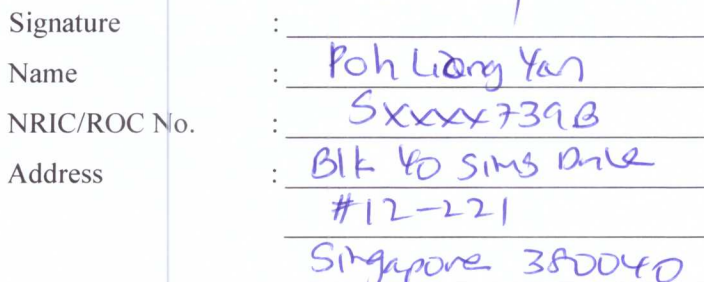 Signature :
Name : Poh Liang Yan
NRIC/ROC No. : SXXXX739B
Address : Blk 40 Sims Drive
#12-221
Singapore 380040